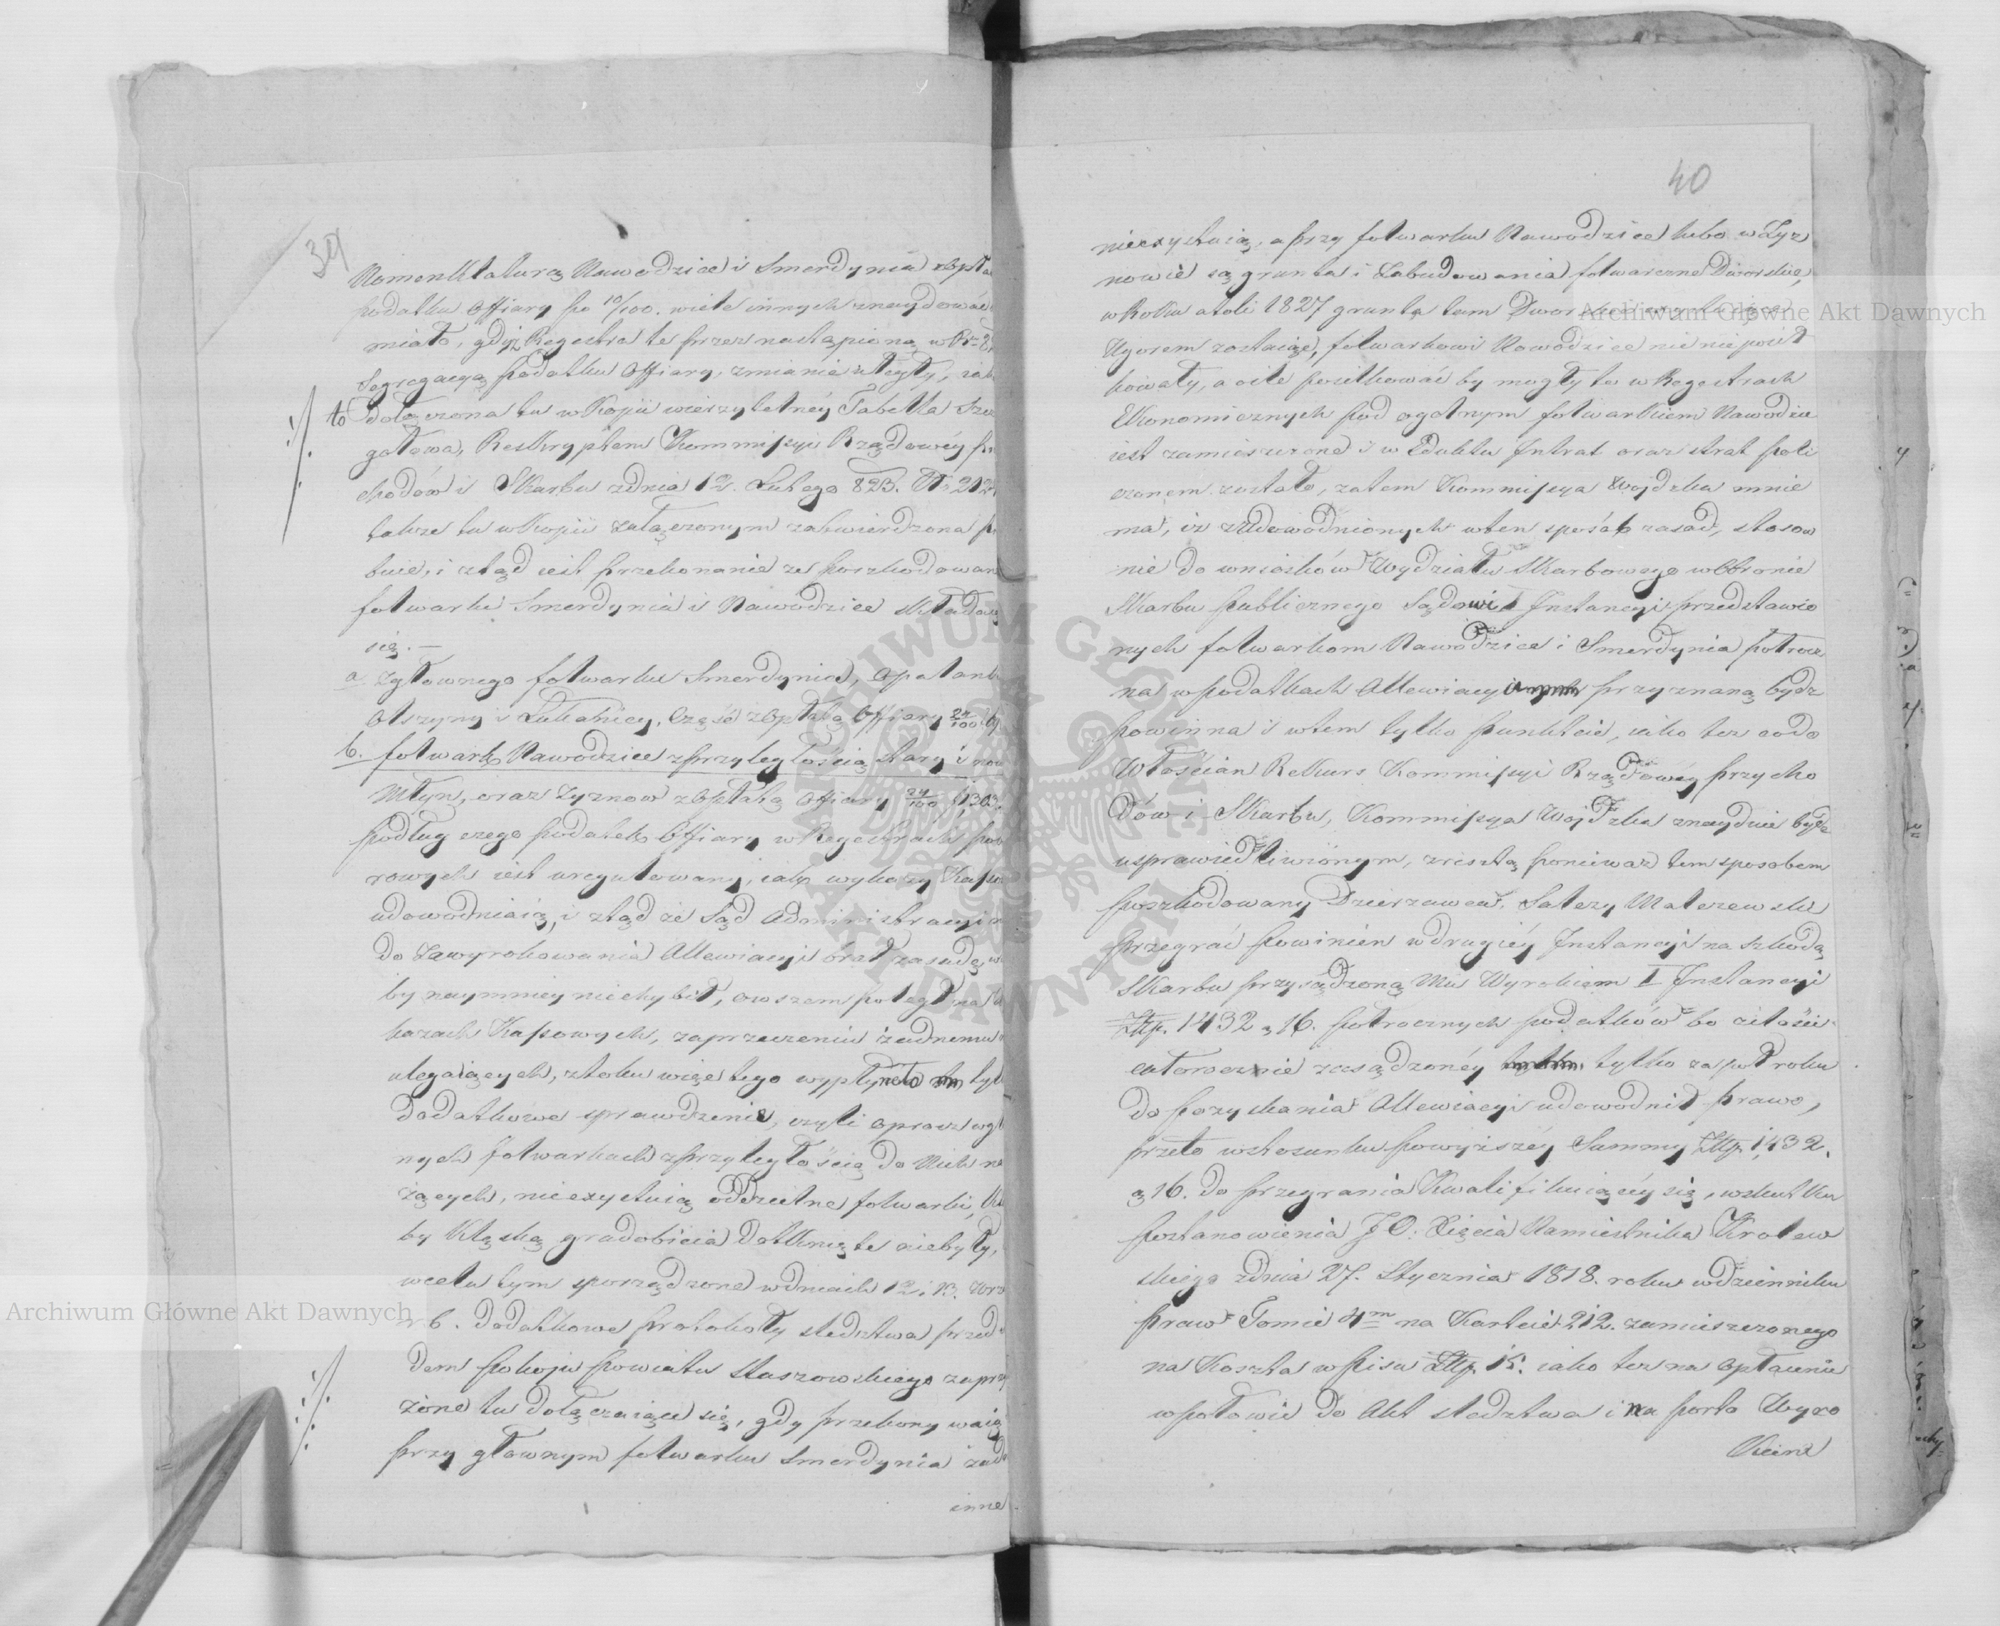 39
Nomenklaturą Nawodzice i Smerdynia zopła
podatku Offiary po 10/100. wiele innych znaydować
miało, gdyż Regestra te przez nastąpioną w
Segregacyą podatku Offiary, zmianie uległy,
to dołączona tu w Kopii wierzytelnéy Tabella Szcze
gołowa, Reskryptem Kommissyi Rządowéy Przy
chodów i Skarbu zdnia 12. Lutego 823. No 212
także tu w Kopii załączonym zatwierdzona
buie, i ztąd iest przekonanie ze poszkodowane
folwarki Smerdynia i Nawodzice składaią
się. —
a. Zgłownego folwarku Smerdynia, Opatank
Olszyny i Sukalnicy. Część zopłatą Offiary 24/100
b. folwark Nawodzice zprzyległością stary i now
Młyn, oraz Łyznow zopłatą Offiary 24/100 f 1303.
podług czego podatek Offiary w Regestrach pobo
rowych iest uregulowany, iak wykazy Kasso
udowodniaią, i ztąd że Sąd Administracyiny
do zawyrokowania Allewiacyi brał zasadę,
by naymniey niechybił, owszem polegał na wy
kazach Kassowych, zaprzeczeniu żadnemu
ulegaiących, ztoku więc tego wypłynęło tyl
dodatkowe sprawdzenie, czyli oprocz wgł
nych folwarkach zprzyległością do Nich na
żących, nieexystuią oddzielne folwarki, Któ
by Klęską gradobicia dotknięte niebyły,
wcelu tym sporządzone wdniach 12. i 13.
r b. dodatkowe protokoły śledztwa przed
dem pokoju Powiatu Staszowskiego zaprzy
żone tu dołączaiące się, gdy przekonywaią
przy głownym folwarku Smerdynia żad
inne
40
nieexystuią, a przy folwarku Nawodzice lubo w Łyz
nowie są grunta i Zabudowania folwarczne Dworskie,
w Roku atoli 1827 grunta tam Dworskie
Ugorem zostaiąc, folwarkowi Nawodzice nic nie posił
kowały, a oile posilkować by mogły to w Regestrach
Ekonomicznych pod ogolnym folwarkiem Nawodzice
iest zamieszczone i w Eduktu Intrat oraz strat poli
czonem zostało, zatem Kommissya Wojdzka mnie
ma, iż zudowodnionych wten sposób zasad, stosow
nie do wniosków Wydziału Skarbowego wObronie
Skarbu publicznego Sądowi I Instancyi przedstawio
nych folwarkom Nawodzice i Smerdynia potrocz
na wpodatkach Allewiacya przyznaną bydź
powinna i wtem tylko punkcie, iako też codo
Włościan Rekurs Kommissyi Rządowéy przycho
dów i Skarbu, Kommissya Wojdzka znayduie bydź
usprawiedliwionym, zresztą ponieważ tem sposobem
poszkodowany Dzierzawca Satezy Maleszewski
przegrać powinien wdrugiéy Instancyi na szkodę
Skarbu przysądzoną Mu Wyrokiem I Instancyi
Złłp. 1432 g 16. potrocznych podatków bo zilości
całorocznie zasądzonéy tylko za pół roku
do pozyskania Allewiacyi udowodnił prawo,
przeto wstosunku powyższéy Summy Złłp. 1,432.
g 16. do przegrania Kwalifikuiącéy się, wskutku
postanowienia J O. Xięcia Namiestnika Krolew
skiego zdnia 27. Stycznia 1818. roku wdzienniku
praw Tomie 4m na Karcie 212. zamieszczonego
na Koszta wpisu Złłp. 15. iako też na opłacenie
wpołowie do Akt śledztwa i na porto Wyro
kiem